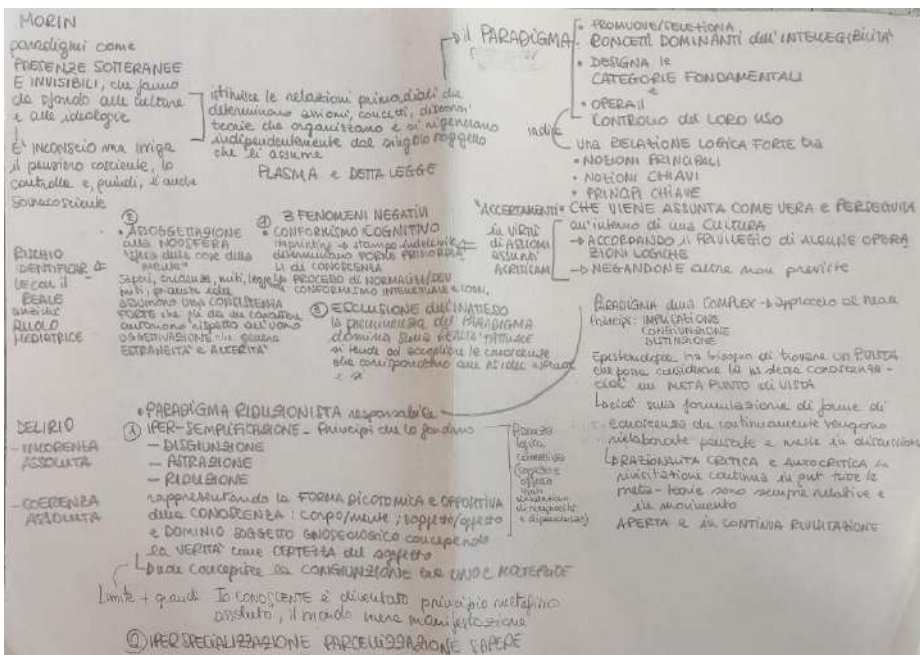 MORIN
paradigmi come
PRESENZE SOTTERANEE
E INVISIBILI, che fanno
da sfondo alle culture
e alle ideologie
È INCONSCIO ma irriga
il pensiero cosciente, lo
controlla e, quindi, è anche
sovracosciente
istituisce le relazioni primordiali che
determinano assiomi, concetti, discorsi
teorie che organizzano e si rigenerano
indipendentemente dal singolo soggetto
che li assume
PLASMA e DETTA LEGGE
il PARADIGMA
• PROMUOVE/SELEZIONA
CONCETTI DOMINANTI dell'INTELLEGIBILITÀ
• DESIGNA le
CATEGORIE FONDAMENTALI
e
• OPERA il
CONTROLLO del LORO USO
indica
Una RELAZIONE LOGICA FORTE tra
• NOZIONI PRINCIPALI
• NOZIONI CHIAVI
• PRINCIPI CHIAVE
"ACCERTAMENTI" CHE VIENE ASSUNTA COME VERA e PERSEGUIDA
all'interno di una CULTURA
in virtù
di ASSIOMI
assunti
ACRITICAM.
→ ACCORDANDO il PRIVILEGIO di ALCUNE OPERA
ZIONI LOGICHE
→ NEGANDONE altre non previste
3 FENOMENI NEGATIVI
① CONFORMISMO COGNITIVO
imprinting → stampo indelebile
determinano FORME PRIMORDIA
LI di CONOSCENZA
PROCESSO di NORMALIZZ/DEV
CONFORMISMO INTELLETTUALE
②
• ASSOGGETTAZIONE
alla NOOSFERA
"sfera delle cose della
mente"
Saperi, credenze, miti, leggende
idee
assumono una CONSISTENZA
FORTE che più da un carattere
autonomo rispetto all'uomo
OGGETTIVAZIONE che genera
ESTRANEITÀ e ALTERITÀ
RISCHIO
IDENTIFICAR
LE CON il
REALE
anziché
RUOLO
MEDIATRICE
③ ESCLUSIONE dell'INATTESO
la preminenza del PARADIGMA
domina sulla REALTÀ FATTUALE
si tende ad accogliere le conoscenze
che corrispondono
PARADIGMA della COMPLEX → approccio al reale
Principi: IMPLICAZIONE
CONGIUNZIONE
DISTINZIONE
Epistemologia ha bisogno di trovare un PUNTO
che possa considerare la ns stessa conoscenza -
cioè un META PUNTO di VISTA
cioè sulla formulazione di forme di
conoscenza che continuamente vengono
rielaborate pensate e messe in discussione
RAZIONALITÀ CRITICA e AUTOCRITICA in
rivisitazione continua in cui tutte le
meta-teorie sono sempre relative e
in movimento
APERTA e in CONTINUA RIVISITAZIONE
• PARADIGMA RIDUZIONISTA responsabile
① IPER-SEMPLIFICAZIONE - Principi che lo fondano
- DISGIUNZIONE
- ASTRAZIONE
- RIDUZIONE
logica
(soggetto e
oggetto
rappresentando la FORMA DICOTOMICA e OPPOSITIVA
della CONOSCENZA: corpo/mente; soggetto/oggetto
e DOMINIO SOGGETTO GNOSEOLOGICO concependo
la VERITÀ come CERTEZZA del soggetto
concepire la CONGIUNZIONE tra UNO e MOLTEPLICE
Limite + grande IO CONOSCENTE è diventato principio metafisico
assoluto, il mondo mera manifestazione
② IPERSPECIALIZZAZIONE PARCELLIZZAZIONE SAPERE
DELIRIO
- INCOERENZA
ASSOLUTA
- COERENZA
ASSOLUTA